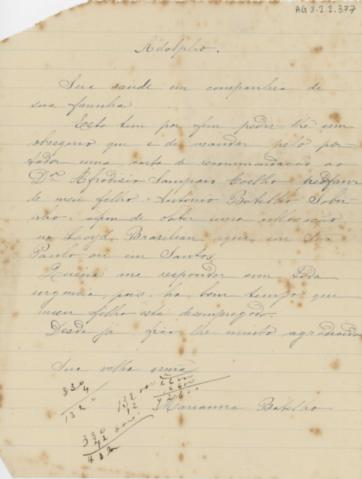 AG 3.2.2.377
Adolpho.
Sua saude em companhia de
sua familia
Esta tem por fim pedir-lhe um
obsequio que é de mandar pelo por
tador uma carta de recommendação ao
Dr. Afrodizio Sampaio Coelho
de meu filho Antonio Botelho Sobri
nho afim de obter uma collocação
no Lloyd Brasilian aqui em São
Paulo ou em Santos.
Queira me responder com toda
urgencia, pois ha bem tempo que
meu filho está desempregado.
Desde já fico lhe muito agradecida
Sua velha
Marianna Botelho